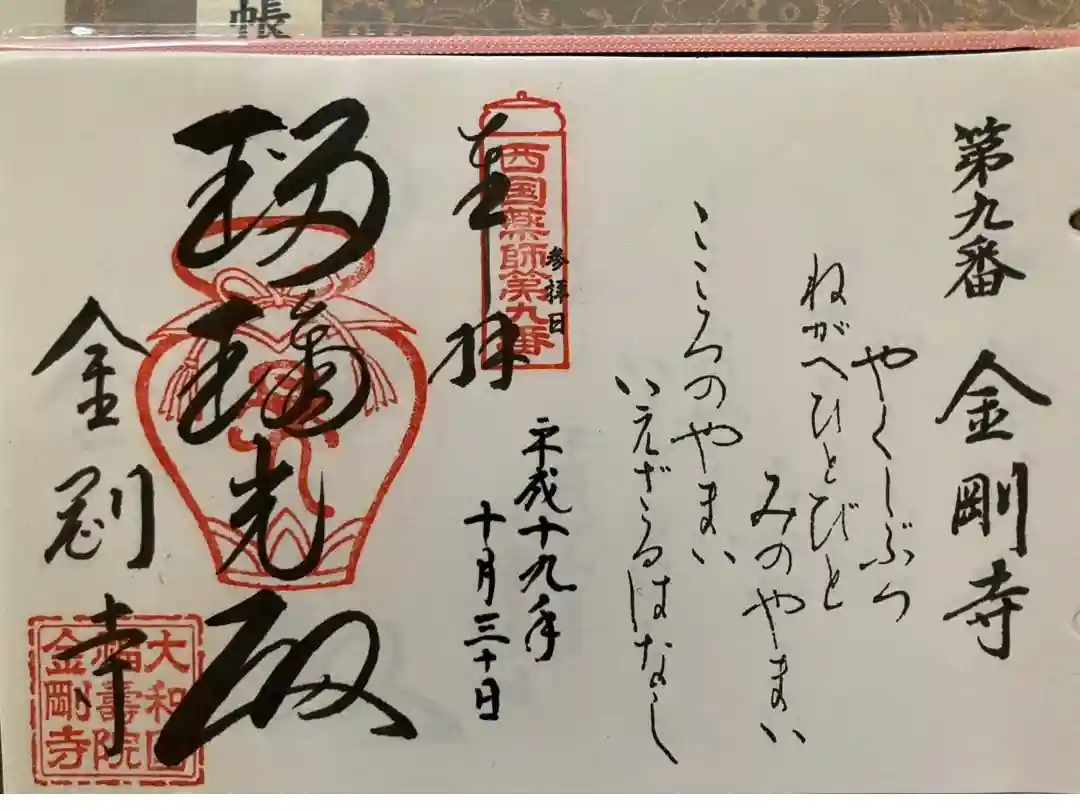 帳
第九番 金剛寺
やくしぶつ
ねがへひとびと
みのやまい
こころのやまい
いえざるはなし
参拝日
西国薬師第九番
奉拝
平成十九年
十月三十日
瑠璃光殿
金剛寺
大和国
福壽院
金剛寺